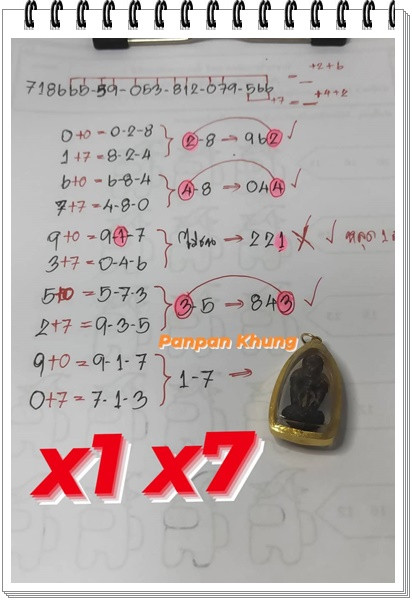 718665-59-053-812-079-566 = _ +2+6
+7 = _ +4+2
0+0=0-2-8
1+7=8-2-4
2-8→962✓
6+0=6-8-4
7+7=4-8-0
4-8→044✓
9+0=9-1-7
3+7=0-4-6
ไม่ชน→221
5+0=5-7-3
2+7=9-3-5
3-5→843✓
Panpan Khung
9+0=9-1-7
0+7=7-1-3
1-7⇒
x1 x7